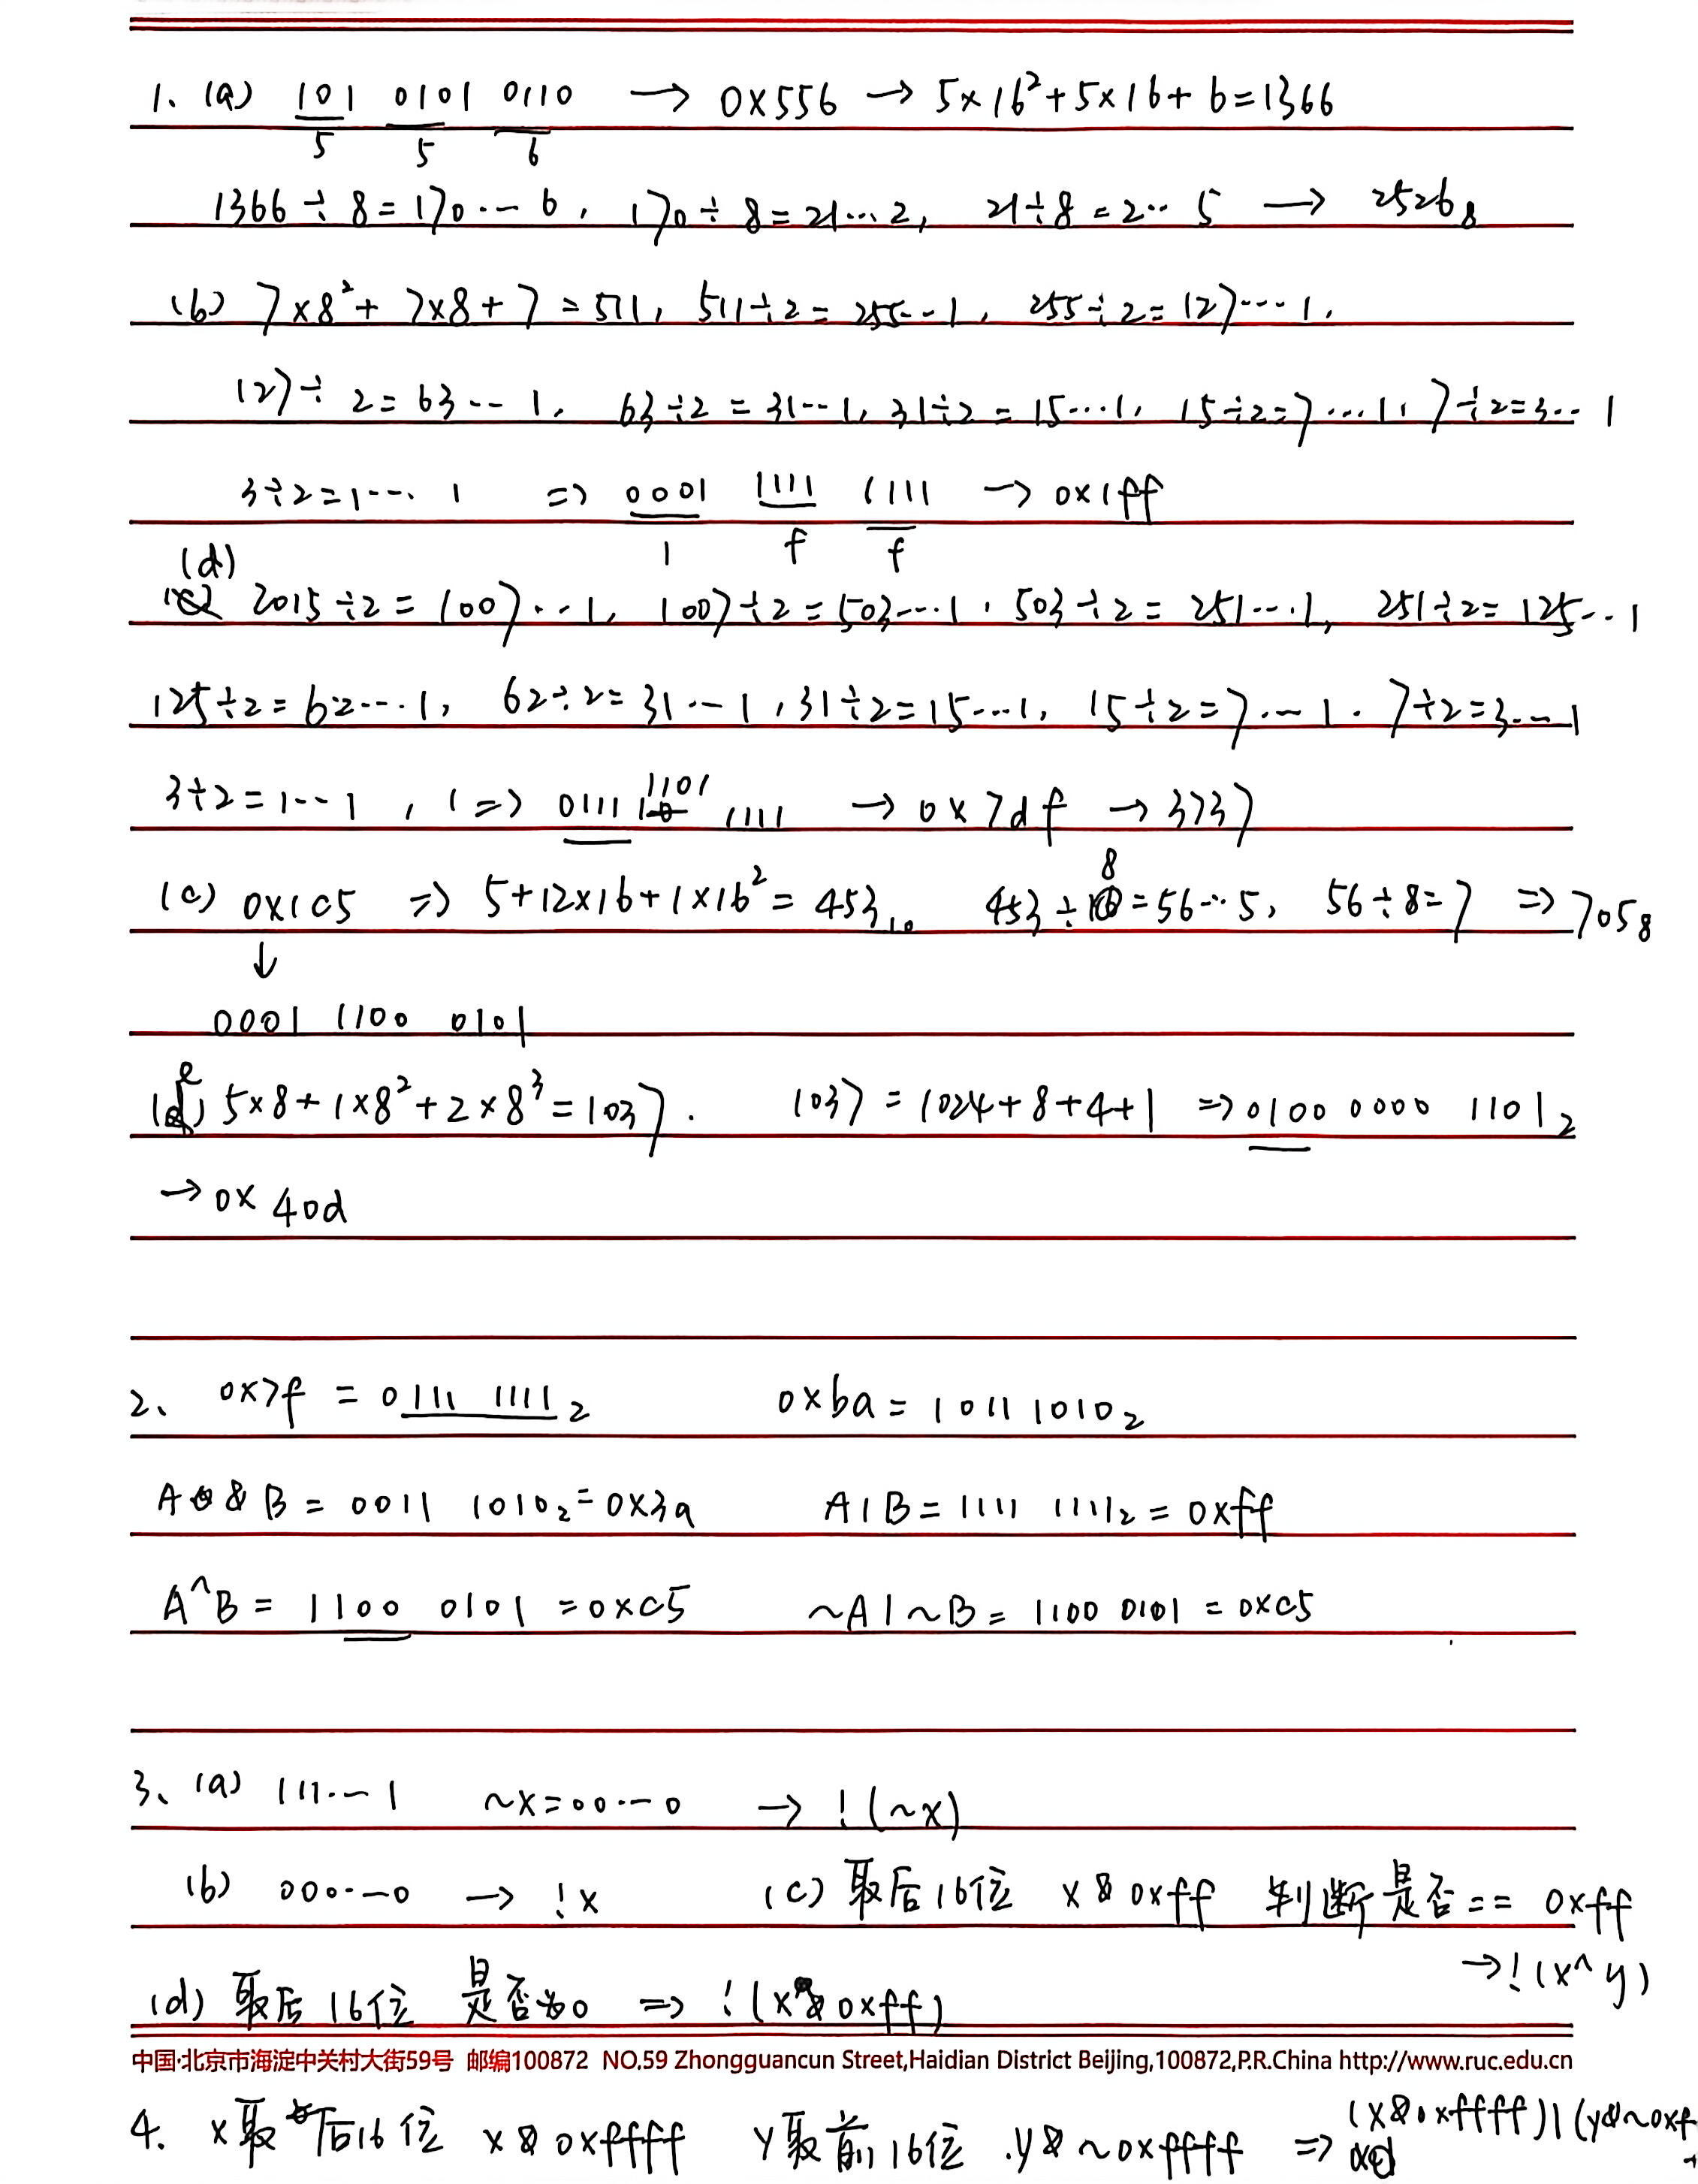 1、(a) 101 0101 0110 → 0x556 → 5×16²+5×16+6=1366
5 5 6
1366÷8=170…6, 170÷8=21…2, 21÷8=2…5 → 2526₈
(b) 7×8²+7×8+7=511, 511÷2=255…1, 255÷2=127…1,
127÷2=63…1, 63÷2=31…1, 31÷2=15…1, 15÷2=7…1, 7÷2=3…1
3÷2=1…1 => 0001 1111 1111 → 0x1ff
1 f f
(d) 2015÷2=1007…1, 1007÷2=503…1, 503÷2=251…1, 251÷2=125…1
125÷2=62…1, 62÷2=31…1, 31÷2=15…1, 15÷2=7…1. 7÷2=3…1
3÷2=1…1, 1=> 0111 1101 1111 → 0x7df → 3737
(c) 0x1c5 => 5+12×16+1×16²=453₁₀ 453÷8=56…5, 56÷8=7 => 705₈
↓
0001 1100 0101
(e) 5×8+1×8²+2×8³=1037. 1037=1024+8+4+1 => 0100 0000 1101₂
→ 0x40d
2、 0x7f = 0111 1111₂ 0xba = 1011 1010₂
A & B = 0011 1010₂ = 0x3a A | B = 1111 1111₂ = 0xff
A^B = 1100 0101 = 0xc5 ~A | ~B = 1100 0101 = 0xc5
3、(a) 111…1 ~x=00…0 → !(~x)
(b) 000…0 → !x (c) 取后16位 x & 0xff 判断是否== 0xff
→!(x^y)
(d) 取后16位 是否为0 => !(x & 0xff)
中国·北京市海淀中关村大街59号 邮编100872 NO.59 Zhongguancun Street,Haidian District Beijing,100872,P.R.China http://www.ruc.edu.cn
4. x取后16位 x & 0xffff y取前16位 .y & ~0xffff => (x&0xffff)|(y&~0xf